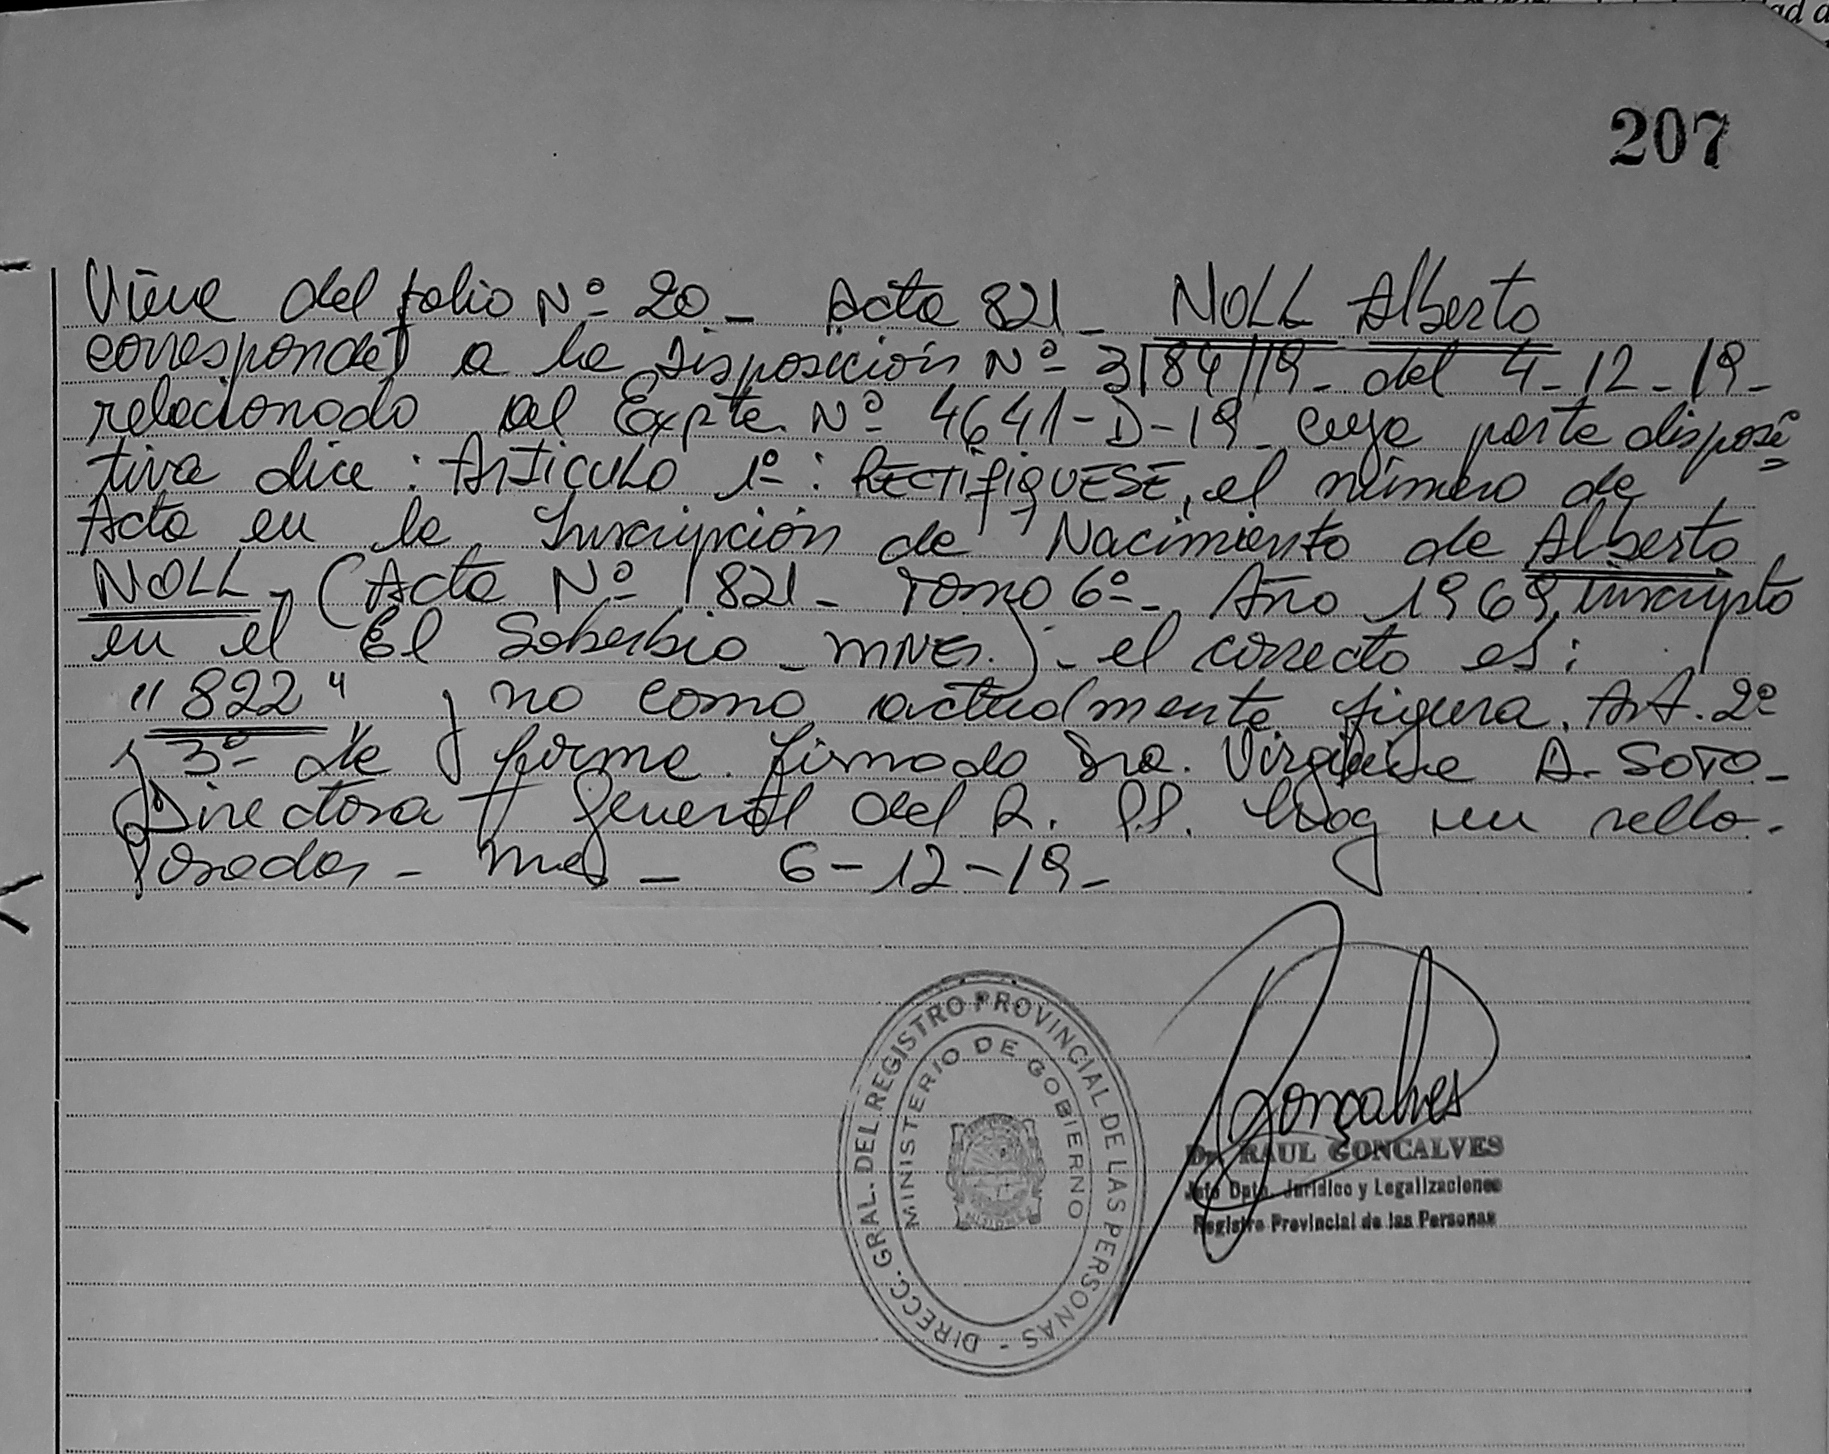 207
Viene del folio Nº 20 - Acta 821 - NOLL Alberto
corresponde a la Disposición Nº 3184/19 - del 4-12-19-
relacionado al Expte. Nº 4641-D-19 - cuya parte disposi=
tiva dice: Artículo 1º: RECTIFIQUESE, el número de
Acta en la Inscripción de Nacimiento de Alberto
NOLL - (Acta Nº 821 - Tomo 6º - Año 1969, inscripto
en el El Soberbio - MNES.) - el correcto es:
"822" y no como actualmente figura. Art. 2º
y 3º de forma. Firmado Dra. Virginia A. SOTO -
Directora General del R. P.P. Hay un sello.
Posadas - Mnes - 6-12-19-
DIRECC. GRAL. DEL REGISTRO PROVINCIAL DE LAS PERSONAS -
MINISTERIO DE GOBIERNO
Gonçalves
Dr. RAUL GONCALVES
Jefe Dpto. Jurídico y Legalizaciones
Registro Provincial de las Personas